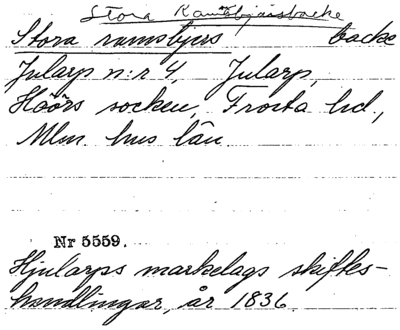 Stora Ramsbjärsbacke
Stora ramsbjers backe
Jularp n:r 4, Jularp,
Höörs socken, Frosta hd.,
Mlm. hus län
Nr 5559.
Hjularps markelags skiftes-
handlingar, år 1836.